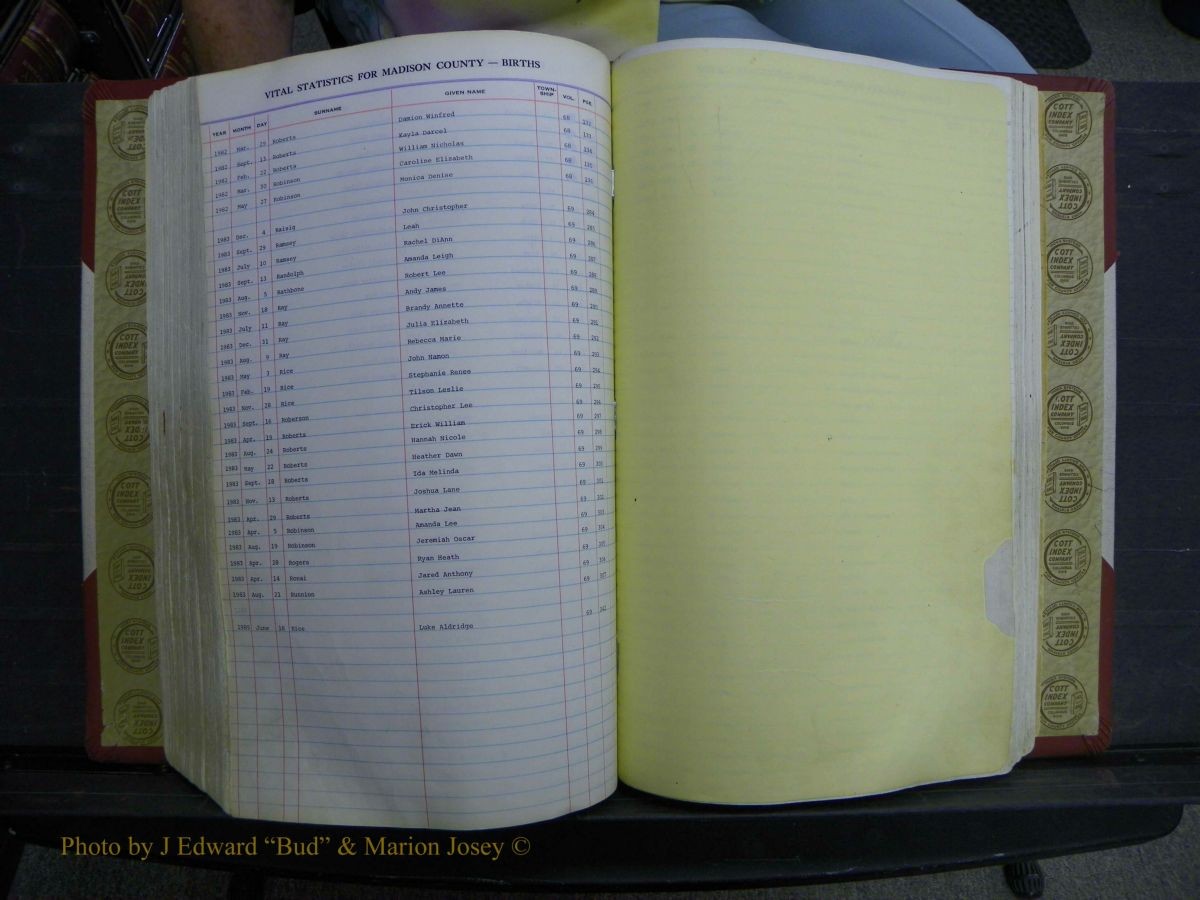 VITAL STATISTICS FOR MADISON COUNTY — BIRTHS
YEAR MONTH DAY SURNAME GIVEN NAME TOWN-SHIP VOL. PGE.
1982 Mar. 29 Roberts Damion Winfred 68 232
1982 Sept. 13 Roberts Kayla Darcel 68 233
1982 Feb. 22 Roberts William Nicholas 68 234
1982 Mar. 30 Robinson Caroline Elizabeth 68 235
1982 May 27 Robinson Monica Denise 68 236
1983 Dec. 4 Raisig John Christopher 69 284
1983 Sept. 29 Ramsey Leah 69 285
1983 July 10 Ramsey Rachel DiAnn 69 286
1983 Sept. 13 Randolph Amanda Leigh 69 287
1983 Aug. 5 Rathbone Robert Lee 69 288
1983 Nov. 18 Ray Andy James 69 289
1983 July 11 Ray Brandy Annette 69 290
1983 Dec. 31 Ray Julia Elizabeth 69 291
1983 Aug. 9 Ray Rebecca Marie 69 292
1983 May 3 Rice John Namon 69 293
1983 Feb. 19 Rice Stephanie Renee 69 294
1983 Nov. 28 Rice Tilson Leslie 69 295
1983 Sept. 16 Roberson Christopher Lee 69 296
1983 Apr. 19 Roberts Erick William 69 297
1983 Aug. 24 Roberts Hannah Nicole 69 298
1983 May 22 Roberts Heather Dawn 69 299
1983 Sept. 28 Roberts Ida Melinda 69 300
1983 Nov. 13 Roberts Joshua Lane 69 301
1983 Apr. 29 Roberts Martha Jean 69 302
1983 Apr. 5 Robinson Amanda Lee 69 303
1983 Aug. 19 Robinson Jeremiah Oscar 69 304
1983 Apr. 28 Rogers Ryan Heath 69 305
1983 Apr. 14 Ronai Jared Anthony 69 306
1983 Aug. 21 Runnion Ashley Lauren 69 307
June Rice Luke Aldridge 69
COTT INDEX COMPANY
COLUMBUS OHIO
Photo by J Edward “Bud” & Marion Josey ©